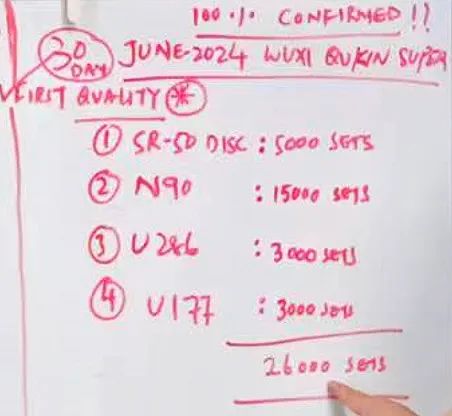 100 % CONFIRMED !!
30 DAY JUNE-2024 WUXI QUKIN SUPER
FIRST QUALITY *
1 SR-SD DISC : 5000 SETS
2 N90 : 15000 SETS
3 U286 : 3000 SETS
4 U177 : 3000 SETS
26000 SETS